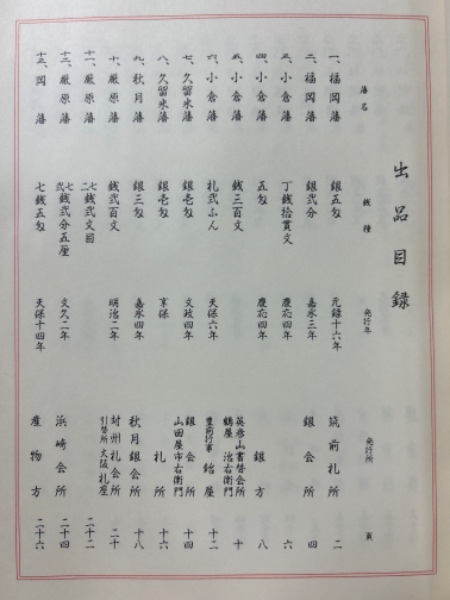 出品目録
藩名 銭種 発行年 発行所 頁
一、福岡藩 銀五匁 元録十六年 筑前札所 二
二、福岡藩 銀弐分 嘉永三年 銀会所 四
三、小倉藩 丁銭拾貫文 慶応四年 六
四、小倉藩 五匁 慶応四年 銀方 八
五、小倉藩 銭三百文 英彦山書替会所 鶴屋治右衛門 十
六、小倉藩 札弐ふん 天保六年 豊前行事 屋 十二
七、久留米藩 銀壱匁 文政四年 銀会所 山田屋市右衛門 十四
八、久留米藩 銀壱匁 享保 札所 十六
九、秋月藩 銀三匁 嘉永四年 秋月銀会所 十八
十、厳原藩 銭弐百文 明治二年 対州札会所 引替所大阪札座 二十
十一、厳原藩 七二銭弐文目 二十二
十二、厳原藩 七弐銭弐分五厘 文久二年 浜崎会所 二十四
十三、岡藩 七銭五匁 天保十四年 産物方 二十六